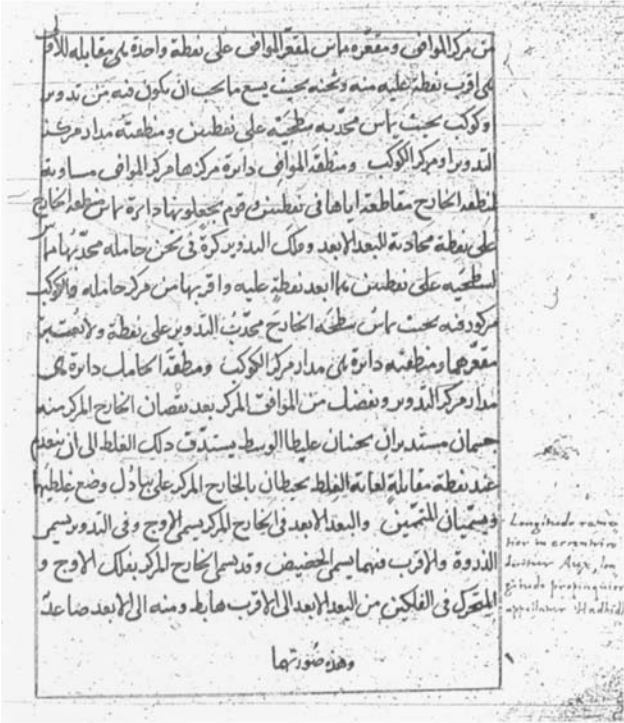 من مركز الموافق ومقعّره يماس لمقعّر الموافق على نقطة واحدة هى مقابله للأولى
هى اقرب نقطة عليه منه وثخنه بحيث يسع ما يجب ان يكون فيه من تدوير
وكوكب بحيث يماس محدّبه سطحيه على نقطتين ومنطقته مدار مركز
التدوير او مركز الكوكب ومنطقة الموافق دائرة مركزها مركز الموافق مساوية
لمنطقة الخارج مقاطعة اياها فى نقطتين وقوم يجعلونها دائرة يماس منطقة الخارج
على نقطة محاذية للبعد الابعد وفلك التدوير كرة فى ثخن حامله محدّبها مماسّ
لسطحيه على نقطتين هما ابعد نقطة عليه واقربها من مركز حامله والكوكب
مركوز فيه بحيث يماس سطحه الخارج محدّب التدوير على نقطة ولا يعتبر
مقعّرهما ومنطقته دائرة هى مدار مركز الكوكب ومنطقة الحامل دائرة هى
مدار مركز التدوير ويفضل من الموافق المركز بعد نقصان الخارج المركز منه
جسمان مستديران يحيطان غليظا الوسط يستدقّ ذلك الغلظ الى ان ينعدم
عند نقطة مقابلة لغاية الغلظ يحيطان بالخارج المركز على تبادل وضع غلظيهما
ويسمّيان المتمّمين والبعد الابعد فى الخارج المركز يسمى الاوج وفى التدوير يسمى
الذروة والاقرب فيهما يسمى الحضيض وقد يسمى الخارج المركز بفلك الاوج و
المتحرّك فى الفلكين من البعد الابعد الى الاقرب هابط ومنه الى الابعد صاعد
وهذه صورتها
Longitudo remo
tior in eccentrico
dicitur Aux, lon
gitudo propinquior
appellatur Hadhidh